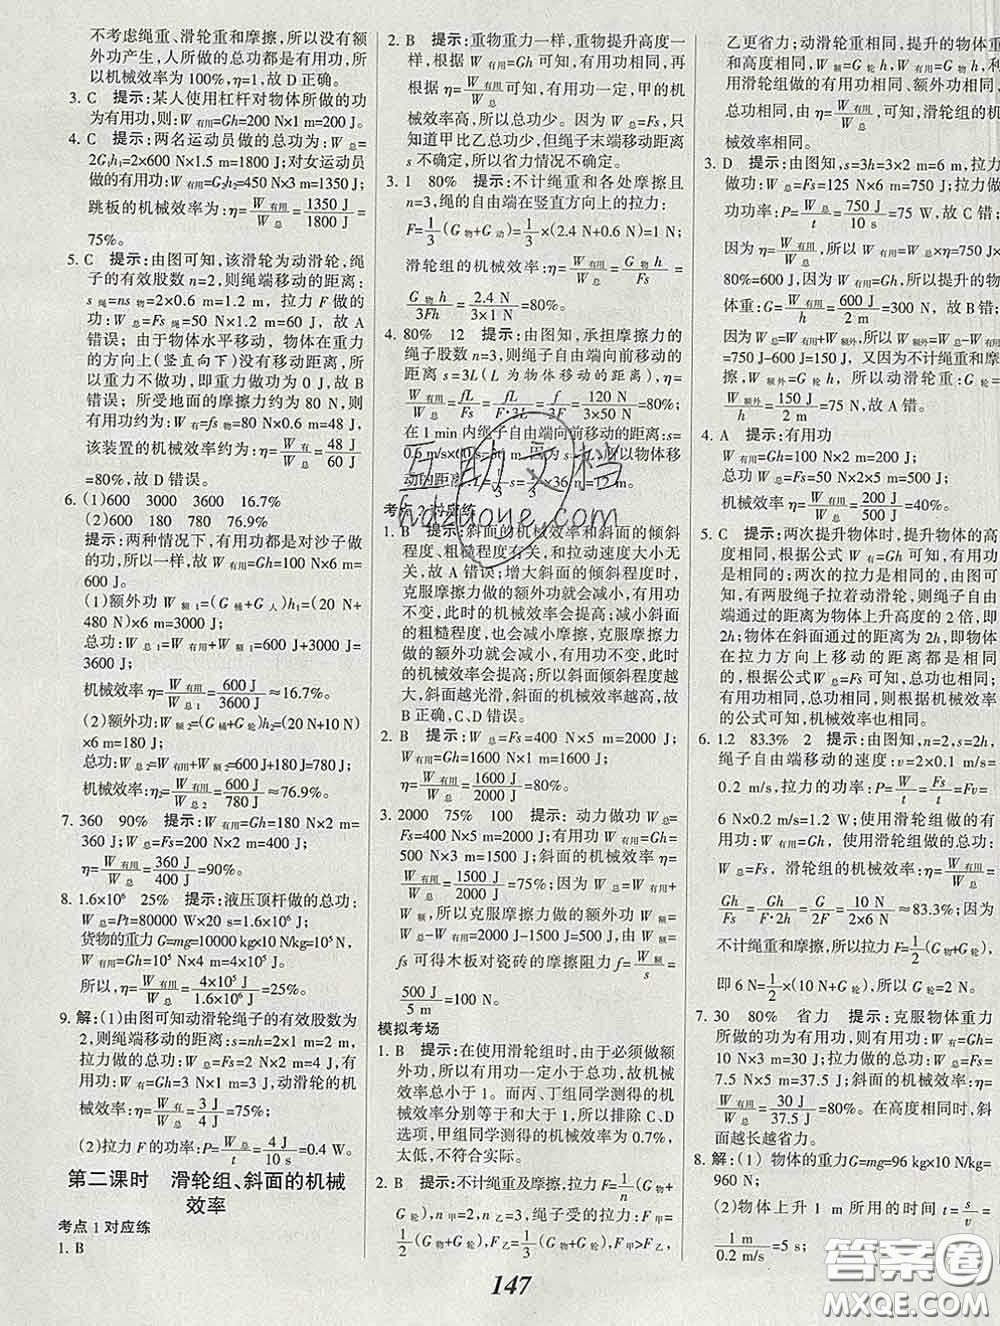 不考虑绳重、滑轮重和摩擦,所以没有额
外功产生,人所做的功都是有用功,所
以机械效率为100%,η=1,故D正确。
3. C 提示:某人使用杠杆对物体所做的功
为有用功,则:W有用=Gh=200 N×1 m=200 J。
4. C 提示:两名运动员做的总功为:W总=
2G1h1=2×600 N×1.5 m=1800 J;对女运动员
做的有用功:W有用=G2h2=450 N×3 m=1350 J,
跳板的机械效率为:η=W有用/W总=1350 J/1800 J=
75%。
5. C 提示:由图可知,该滑轮为动滑轮,绳
子的有效股数n=2,则绳端移动的距离:
s绳=ns物=2×0.6 m=1.2 m,拉力F做的
功:W总=Fs绳=50 N×1.2 m=60 J,故A
错误;由于物体水平移动,物体在重力
的方向上(竖直向下)没有移动距离,所
以重力不做功,即重力做功为0 J,故B
错误;所受地面的摩擦力约为80 N,则
有用功约为:W有用=fs物=80 N×0.6 m=48 J,
该装置的机械效率约为:η=W有用/W总=48 J/60 J
=80%,故D错误。
6. (1)600 3000 3600 16.7%
(2)600 180 780 76.9%
提示:两种情况下,有用功都是对沙子做
功,所以一样,故W有用=Gh=100 N×6 m=
600 J。
(1)额外功W额1=(G桶+G人)h1=(20 N+
480 N)×6 m=3000 J;
总功:W总1=W有用+W额1=600 J+3000 J=
3600 J;
机械效率η=W有用/W总1=600 J/3600 J≈16.7%。
(2)额外功:W额2=(G桶+G轮)h2=(20 N+10 N)
×6 m=180 J;
总功:W总2=W有用+W额2=600 J+180 J=780 J;
机械效率:η2=W有用/W总2=600 J/780 J≈76.9%。
7. 360 90% 提示:W有用=Gh=180 N×2 m=
360 J;W总=Fs=200 N×2 m=400 J;
η=W有用/W总=360 J/400 J=90%。
8. 1.6×10⁶ 25% 提示:液压顶杆做的总功:
W总=Pt=80000 W×20 s=1.6×10⁶ J;
货物的重力G=mg=10000 kg×10 N/kg=10⁵ N;
W有用=Gh=10⁵ N×4 m=4×10⁵ J;
所以,η=W有用/W总=4×10⁵ J/1.6×10⁶ J=25%。
9. 解:(1)由图可知动滑轮绳子的有效股数为
2,则绳端移动的距离:s=nh=2×1 m=2 m,
拉力做的总功:W总=Fs=2 N×2 m=4 J,
W有用=Gh=3 N×1 m=3 J;动滑轮的机
械效率:η=W有/W总=3 J/4 J=75%;
(2)拉力F的功率:P=W总/t=4 J/10 s=0.4 W。
第二课时 滑轮组、斜面的机械
效率
考点1对应练
1. B
2. B 提示:重物重力一样,重物提升高度一
样,根据W有用=Gh可知,有用功一定,再
根据η=W有用/W总可知,有用功一定,甲的机
械效率高,所以总功少。因为W总=Fs,只
知道甲比乙总功少。但绳子末端移动距离
s不确定,所以省力情况不确定。
3. 1 80% 提示:不计绳重和各处摩擦且
n=3,绳的自由端在竖直方向上的拉力:
F=1/3(G物+G动)=1/3×(2.4 N+0.6 N)=1 N;
滑轮组的机械效率:η=W有用/W总=G物h/Fs=
G物h/3Fh=2.4 N/3×1 N=80%。
4. 80% 12 提示:由图知,承担摩擦力的
绳子股数n=3,则绳子自由端向前移动的
距离s=3L(L为物体移动的距离),
η=W有用/W总=fL/Fs=fL/F·3L=f/3F=120 N/3×50 N=80%;
在1 min内绳子自由端向前移动的距离:s=
0.6 m/s×60 s=36 m,所以物体移
动的距离L=1/3s=1/3×36 m=12 m。
考点2对应练
1. B 提示:斜面的机械效率和斜面的倾斜
程度、粗糙程度有关,和拉动速度大小无
关,故A错误;增大斜面的倾斜程度时,
克服摩擦力做的额外功就会减小,有用功
不变,此时的机械效率会提高;减小斜面
的粗糙程度,也会减小摩擦,克服摩擦力
做的额外功减小,有用功不变,机械效率
会提高;所以,斜面的机械效率倾斜程度越
大,斜面越光滑,斜面的机械效率越高,故
B正确,C、D错误。
2. B 提示:W总=Fs=400 N×5 m=2000 J;
W有用=Gh=1600 N×1 m=1600 J;
η=W有用/W总=1600 J/2000 J=80%。
3. 2000 75% 100 提示:动力做功W总=
Fs=400 N×5 m=2000 J;有用功W有用=Gh=
500 N×3 m=1500 J;斜面的机械效率η=
W有用/W总=1500 J/2000 J=75%;因为W总=W有用+
W额,所以克服摩擦力做的额外功W额=
W总-W有用=2000 J-1500 J=500 J;由W额=
fs可得木板对瓷砖的摩擦阻力f=W额/s=
500 J/5 m=100 N。
模拟考场
1. B 提示:在使用滑轮组时,由于必须做额
外功,所以有用功一定小于总功,故机械
效率总小于1。而丙、丁组同学测得的机
械效率分别等于和大于1,所以排除C、D
选项,甲组同学测得的机械效率为0.7%,
太低,不符合实际。
2. B 提示:不计绳重及摩擦,拉力F=1/n(G物+
G轮),n甲=2,n乙=3;绳子受的拉力:F甲=
1/2(G物+G轮),F乙=1/3(G物+G轮),F甲>F乙,
乙更省力;动滑轮重相同,提升的物体重
和高度相同,W额=G轮h,W有用=G物h,利
用滑轮组做的有用功、额外功相同,
总功相同,由η=W有用/W总可知,滑轮组的机
械效率相同。
3. D 提示:由图知,s=3h=3×2 m=6 m,拉力
做功:W总=Fs=125 N×6 m=750 J;拉力做
功功率:P=W总/t=750 J/10 s=75 W,故C错;
因为η=W有用/W总,所以W有用=W总×η=750 J×
80%=600 J,因为W有用=Gh,所以提升的物
体重:G=W有用/h=600 J/2 m=300 N,故B错;
因为W总=W有用+W额外,所以W额外=W总-W有用
=750 J-600 J=150 J,又因为不计绳重和摩
擦,W额外=G轮h,所以动滑轮重:G轮=
W额外/h=150 J/2 m=75 N,故A错。
4. A 提示:有用功
W有用=Gh=100 N×2 m=200 J;
总功W总=Fs=50 N×10 m=500 J;
机械效率η=W有用/W总=200 J/500 J=40%。
5. C 提示:两次提升物体时,提升物体的高
度相同,根据公式W有用=Gh可知,有用功
是相同的;两次的拉力是相同的,由图可
知,有两股绳子拉着动滑轮,则绳子自由
端移动的距离为物体上升高度的2倍,即
2h;物体在斜面通过的距离为2h,即物体
在拉力方向上移动的距离都是相同的,
根据公式W总=Fs可知,总功也相同;
有用功相同,总功相同,则根据机械效率
的公式可知,机械效率也相同。
6. 1.2 83.3% 2 提示:由图知,n=2,s=2h,
绳子自由端移动的速度:v=2×0.1 m/s=
0.2 m/s,拉力的功率:P=W总/t=Fs/t=Fv=
6 N×0.2 m/s=1.2 W;使用滑轮组做的有
用功:W有用=Gh,使用滑轮组做的总功:
W总=Fs,滑轮组的机械效率:η=W有用/W总=
Gh/Fs=Gh/F·2h=G/2F=10 N/2×6 N≈83.3%;因为
不计绳重和摩擦,所以拉力F=1/2(G物+G轮),
即6 N=1/2×(10 N+G轮),所以G轮=2 N。
7. 30 80% 省力 提示:克服物体重力
做的功为有用功,所以W有用=Gh=
10 N×3 m=30 J;拉力做的总功:W总=Fs=
7.5 N×5 m=37.5 J;斜面的机械效率:η=
W有用/W总=30 J/37.5 J=80%。在高度相同时,斜
面越长越省力。
8. 解:(1)物体的重力G=mg=96 kg×10 N/kg=
960 N;
(2)物体上升1 m所用的时间t=s/v=
1 m/0.2 m/s=5 s;
147
互助文档
hdzuoye.com
答案圈
MXQE.COM